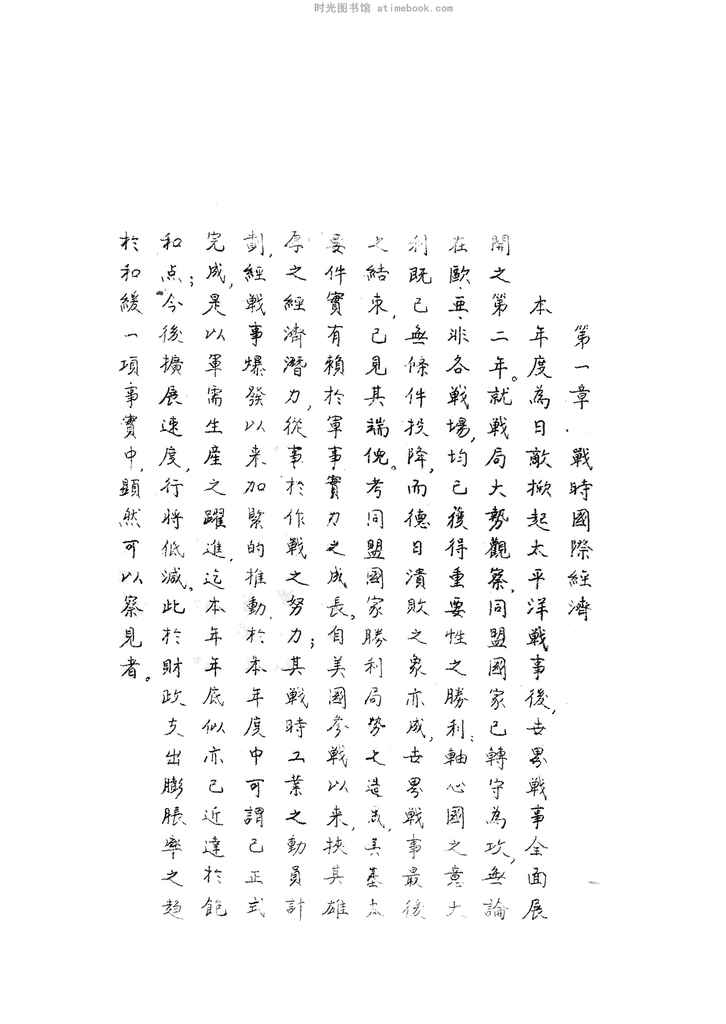 时光图书馆 atimebook.com
第一章·戰時國際經濟
本年度為日敵掀起太平洋戰事後,世界戰事全面展
開之第二年。就戰局大勢觀察,同盟國家已轉守為攻,無論
在歐·亜·非各戰場,均已獲得重要性之勝利;軸心國之意大
利既已無條件投降,而德日潰敗之象亦成,世界戰事最後
之結束,已見其端倪。考同盟國家勝利局勢之造成,其基本
要件實有賴於軍事實力之成長。自美國參戰以来,挾其雄
厚之經濟潛力,從事於作戰之努力;其戰時工業之動員計
劃,經戰事爆發以来加緊的推動,於本年度中可謂已正式
完成,是以軍需生産之躍進,迄本年年底似亦已近達於飽
和点;今後擴展速度,行將低減。此於財政支出膨脹率之趨
於和緩一項事實中,顯然可以察見者。